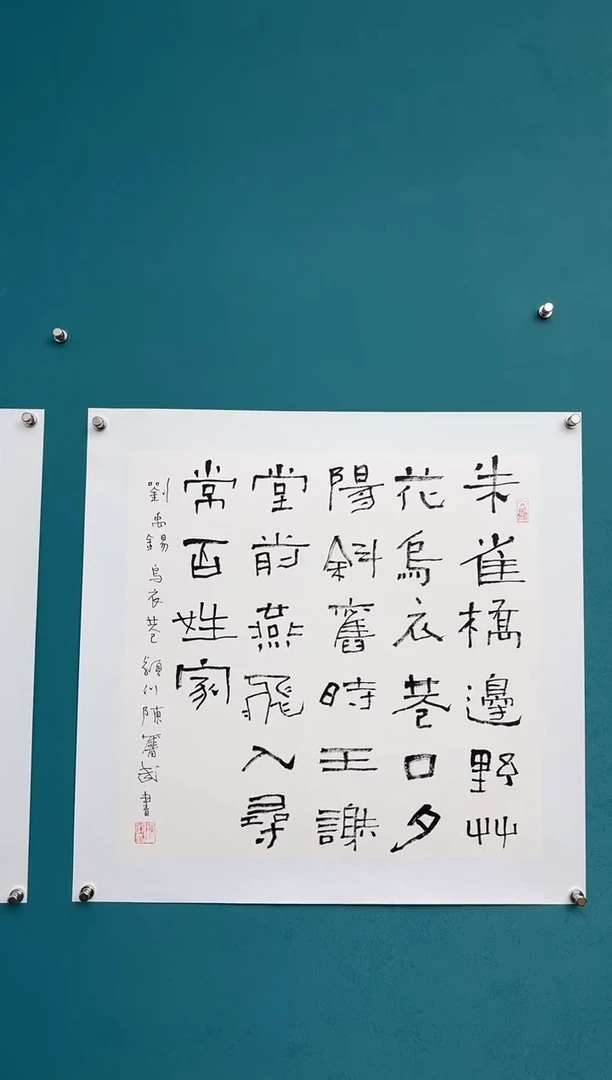 朱雀橋邊野艸
花烏衣巷口夕
陽斜舊時王謝
堂前燕飛入尋
常百姓家
劉禹錫烏衣巷潁川陳舊武書